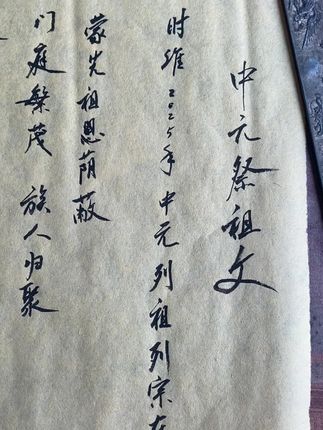 中元祭祖文
时维2025年中元列祖列宗在
蒙先祖恩荫蔽
门庭繁茂 族人归聚